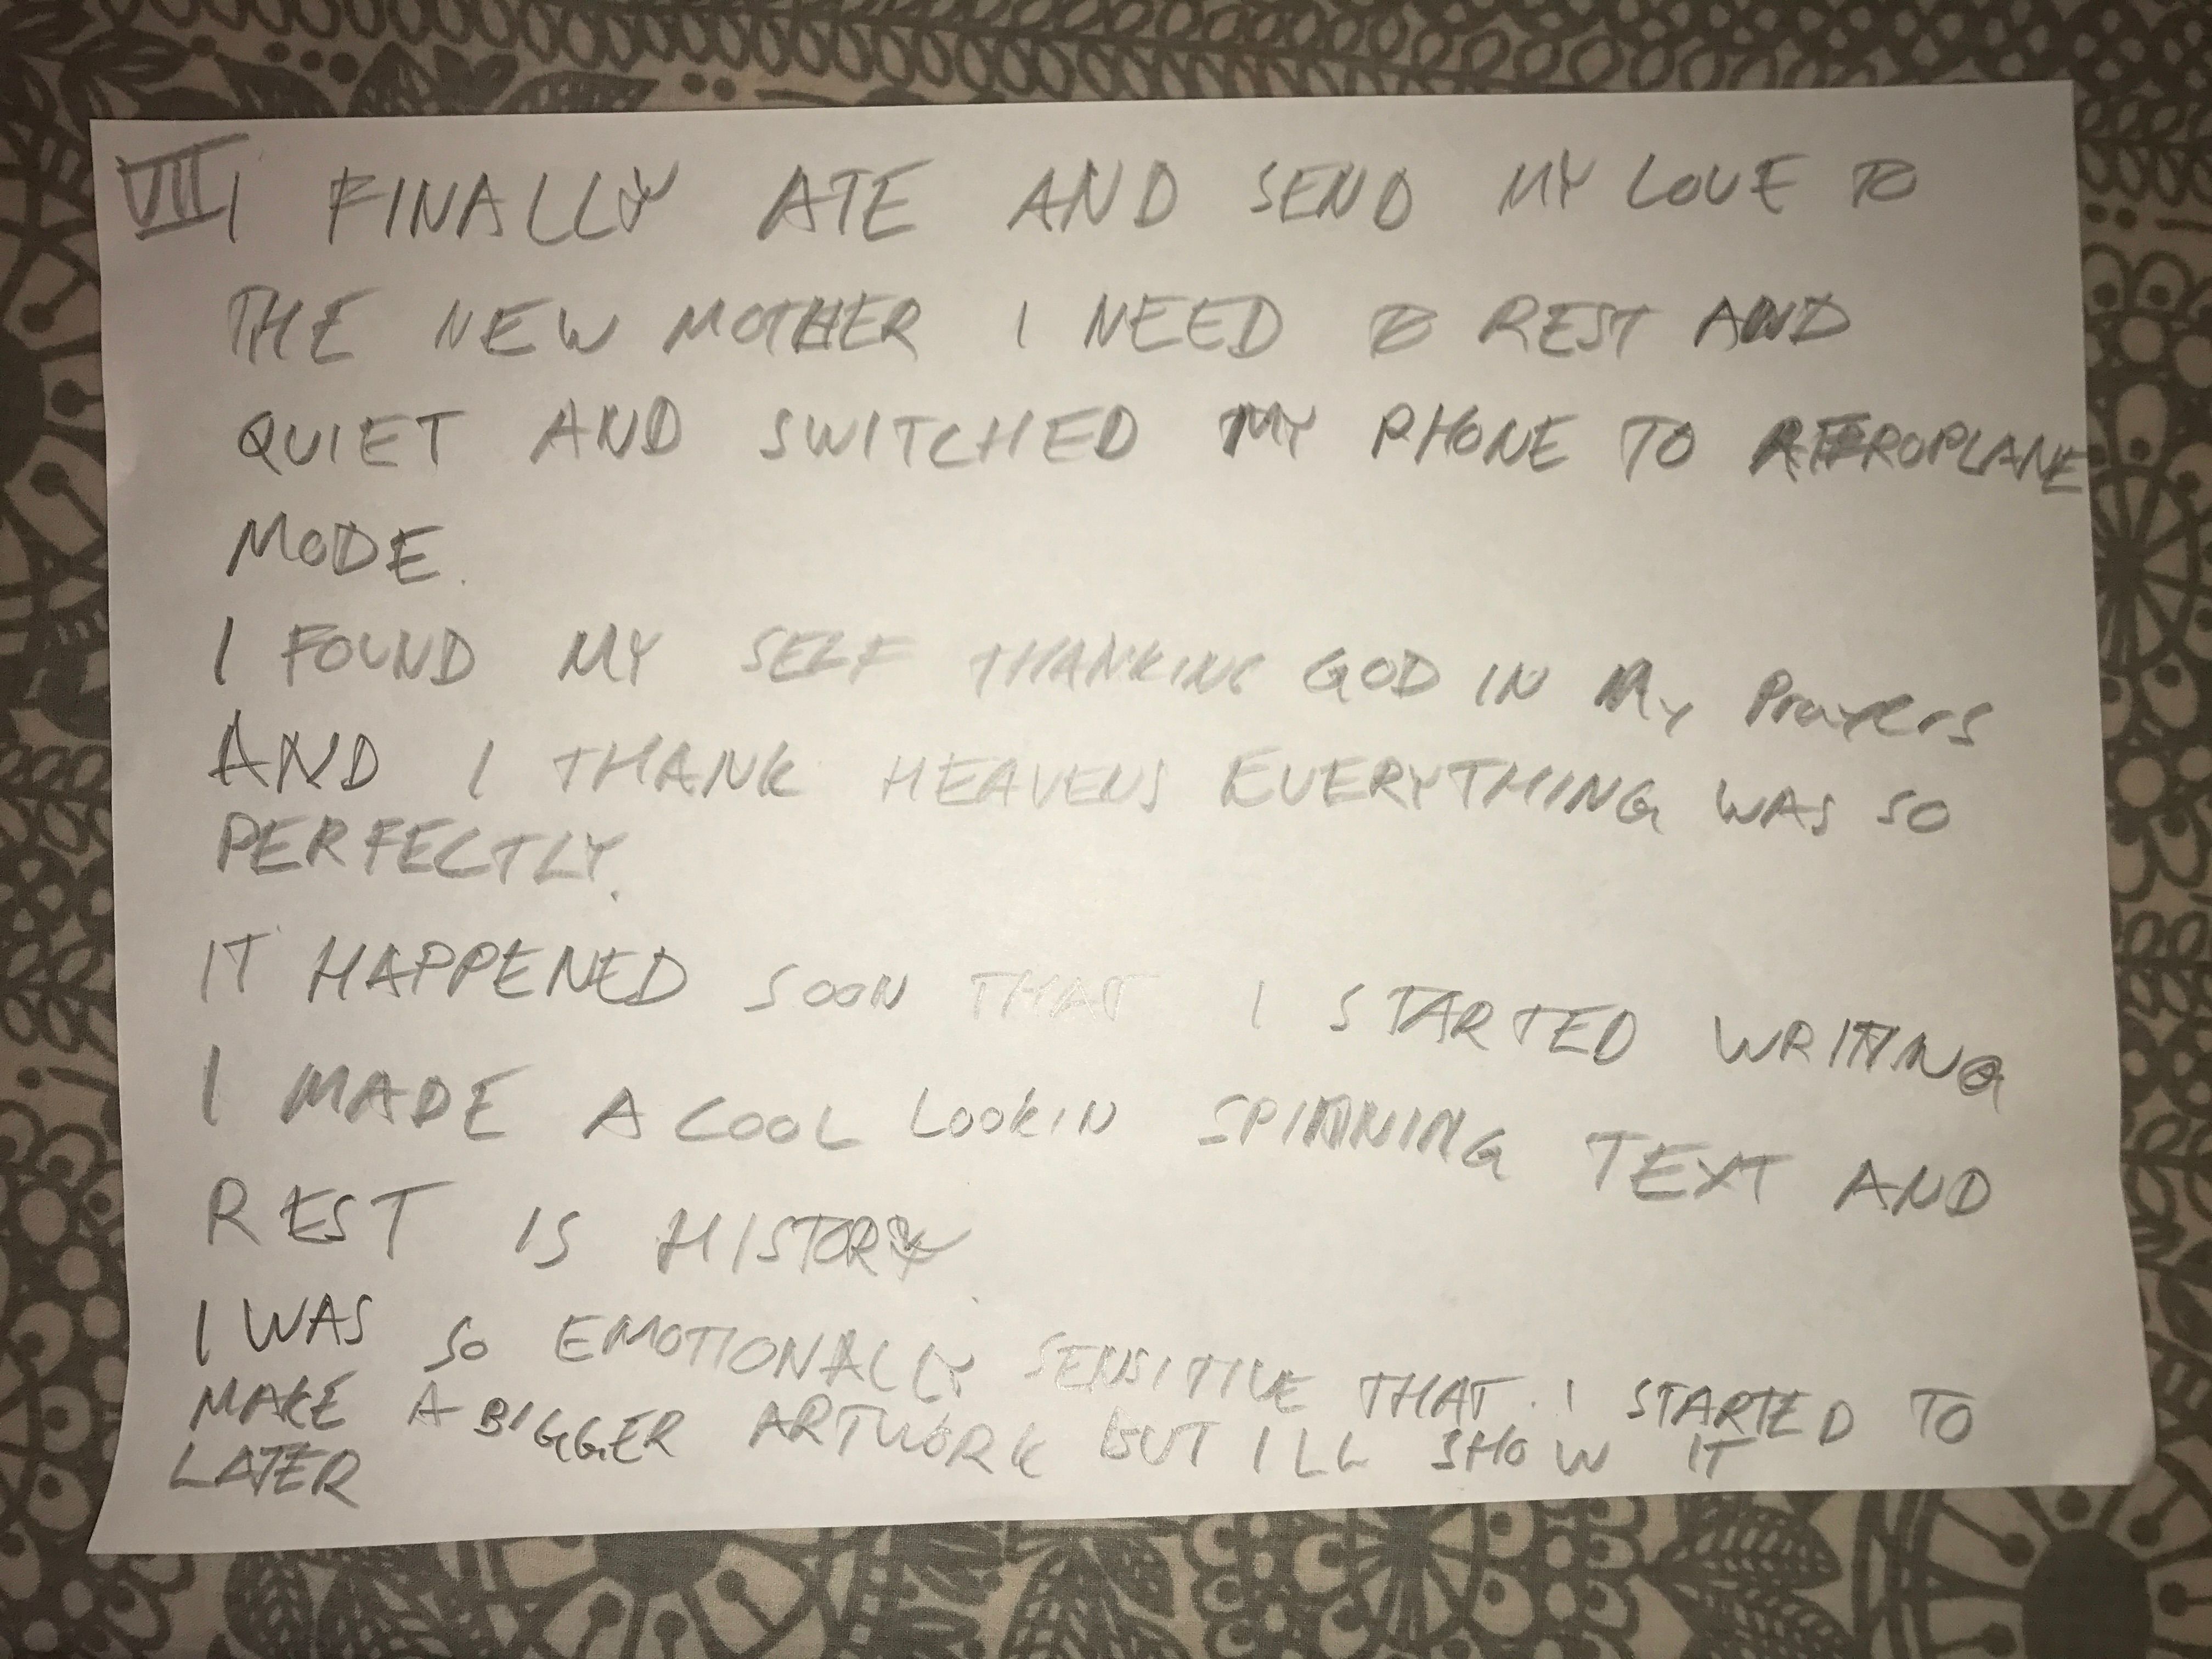 VII I FINALLY ATE AND SEND MY LOVE TO
THE NEW MOTHER I NEED TO REST AND
QUIET AND SWITCHED MY PHONE TO AEROPLANE
MODE.
I FOUND MY SELF THANKING GOD IN My Prayers
AND I THANK HEAVENS EVERYTHING WAS SO
PERFECTLY.
IT HAPPENED SOON THAT I STARTED WRITING
I MADE A COOL LOOKIN SPINNING TEXT AND
REST IS HISTORY
I WAS SO EMOTIONALLY SENSITIVE THAT I STARTED TO
MAKE A BIGGER ARTWORK BUT ILL SHOW IT
LATER